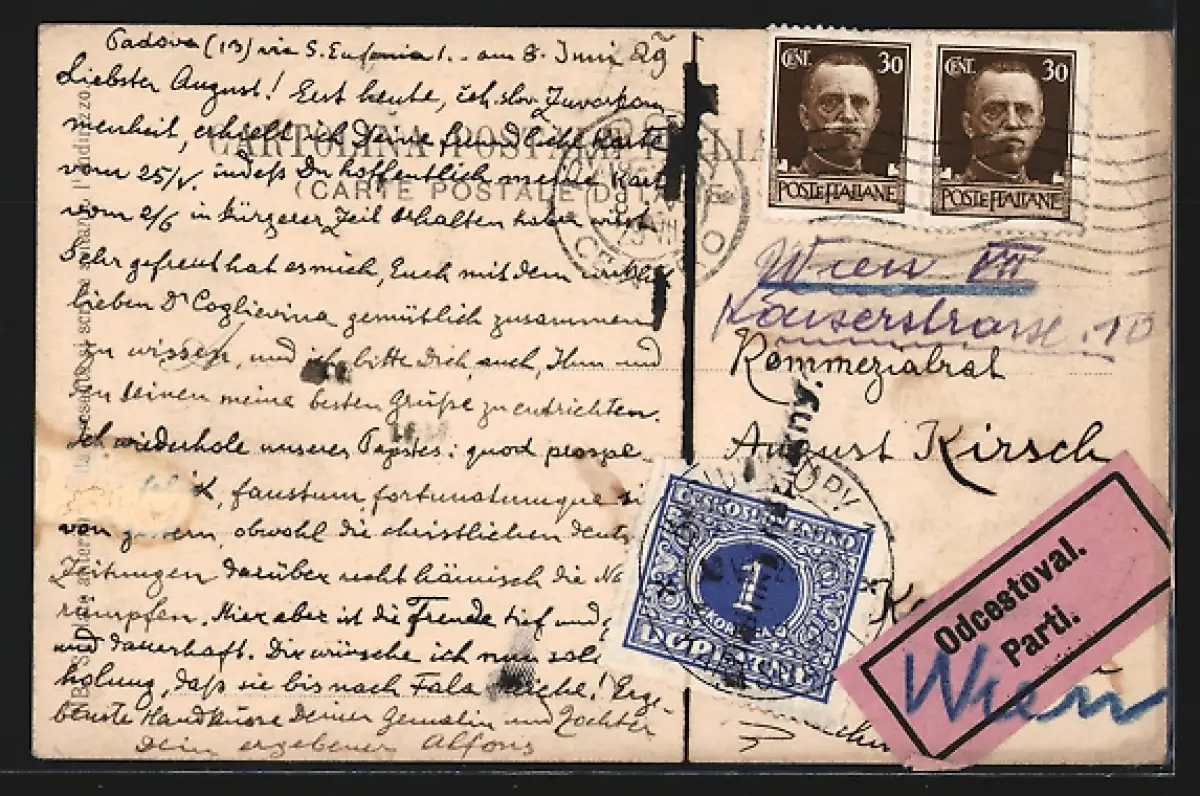 Padova (13) via S. Eufemia 1. am 8. Juni 29
Liebster August! Erst heute, ich
menheit, erhielt ich Deine freundliche Karte
vom 25/V. indeß Du hoffentlich meine Kart
vom 2/6 in kürzerer Zeit erhalten haben wirst
Sehr gefreut hat es mich, Euch mit dem
lieben Dr Coglievina gemütlich zusammen
zu wissen, und ich bitte Dich auch, Ihm und
den seinen meine besten Grüße zu entrichten.
Ich wiederhole unseres Papstes: quod prospe
faustum, fortunatumque si
von gestern, obwohl die christlichen deut
Zeitungen darüber recht hämisch die Na
rümpfen. Hier aber ist die Freude tief und
und dauerhaft. Dir wünsche ich nun
holung, daß sie bis nach Fala reiche! Erge-
benste Handküsse Deiner Gemalin und Tochter
Dein ergebener Alfons
CARTOLINA POSTALE ITALIA
(CARTE POSTALE D'ITALIE
CENT. 30
POSTE ITALIANE
CENT. 30
POSTE ITALIANE
Wien VII
Kaiserstrasse. 10
Kommerzialrat
August Kirsch
ČESKOSLOVENSKO
1
DOPLATNÉ
Odcestoval.
Parti.
Wien